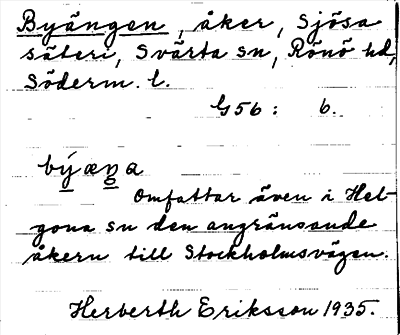 Byängen, åker, Sjösa
säteri, Svärta sn, Rönö hd,
Söderm. l.
G56: 6.
býæŋa
Omfattar även i Hel-
gona sn den angränsande
åkern till Stockholmsvägen.
Herberth Eriksson 1935.